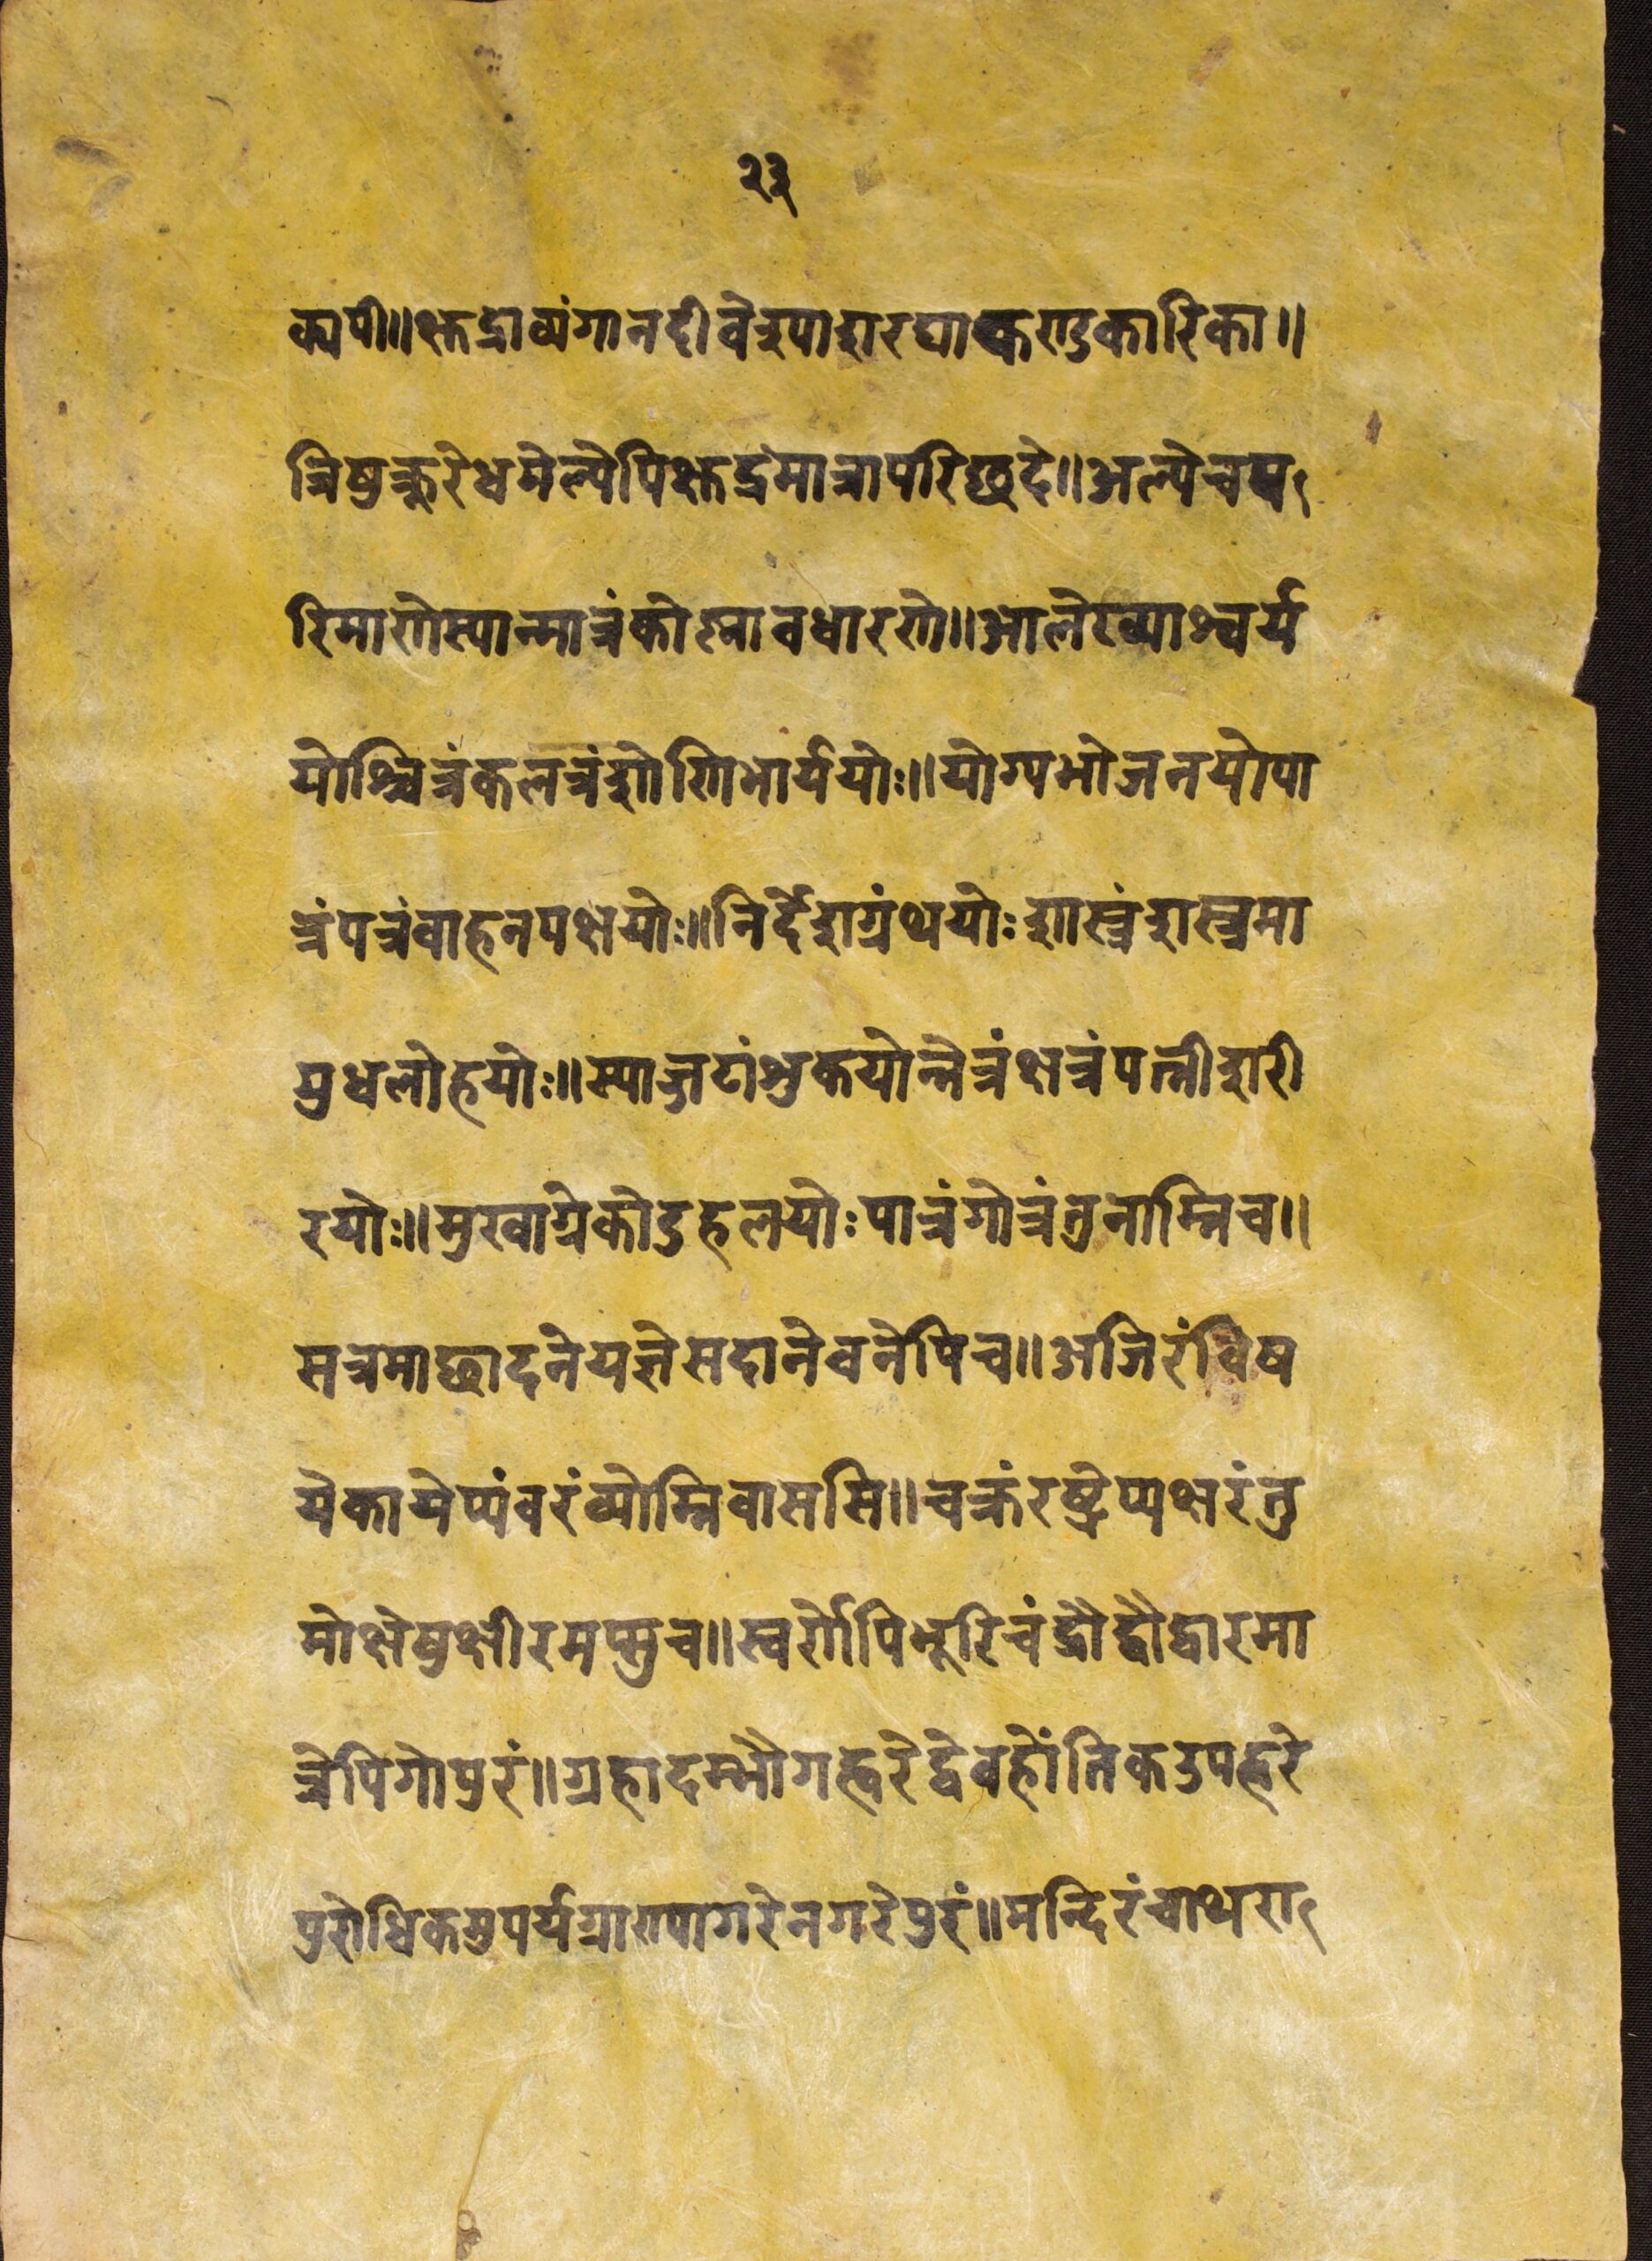 २३
क्यपी॥क्षद्राव्यंगानदीवेश्यादारघाकराटकारिका॥
त्रिषुक्रूरेधमेल्पेपिक्षद्रंमात्रापरिछदे॥अल्पेचप
रिमाणेस्यान्मात्रंकोत्स्नावधारणे॥आलेख्याश्चर्य
योश्चित्रंकलत्रंश्रोणिभार्ययोः॥योग्यभोजनयोपा
त्रंपत्रंवाहनपक्षयोः॥निर्देशग्रंथयोःशास्त्रंशस्त्रमा
युधलोहयोः॥स्याज्जटांशुकयोन्नेत्रंक्षत्रंपत्नीशरी
रयोः॥मुखाग्रेकोडहलयोःपात्रंगोत्रंतुनाम्निच॥
सत्रमाछादनेयज्ञेसदानेवनेपिच॥अजिरंविष
येकायेप्यंबरंव्योम्निवाससि॥चक्रंरष्ट्रेप्यक्षरंतु
मोक्षेषुक्षीरमप्सुच॥स्वर्णेपिभूरिचंद्रौद्वौद्वारमा
त्रेपिगोपुरं॥ग्रहादम्भौगह्वरेद्वेवहोंतिकउपह्वरे
पुरोधिकमुपर्यग्राण्यागरेनगरेपुरं॥मन्दिरंचाथरा